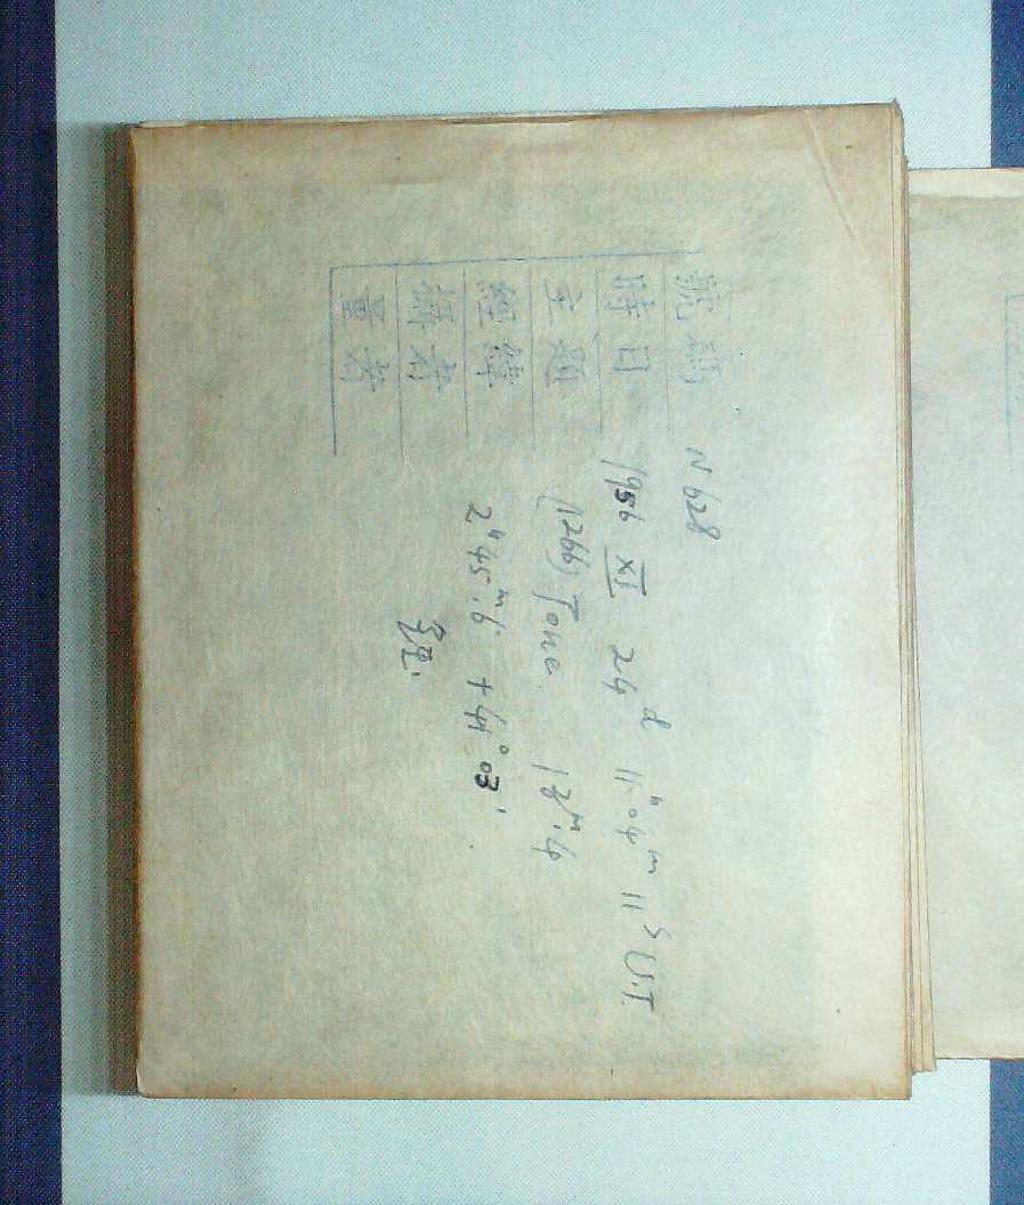 號碼 N 628
時日 1956 XI 24ᵈ 11ʰ04ᵐ11ˢ U.T.
主題 (1266) Tone 13ᵐ.4
經緯 2ʰ45ᵐ.6 +41°03'
攝者
量者